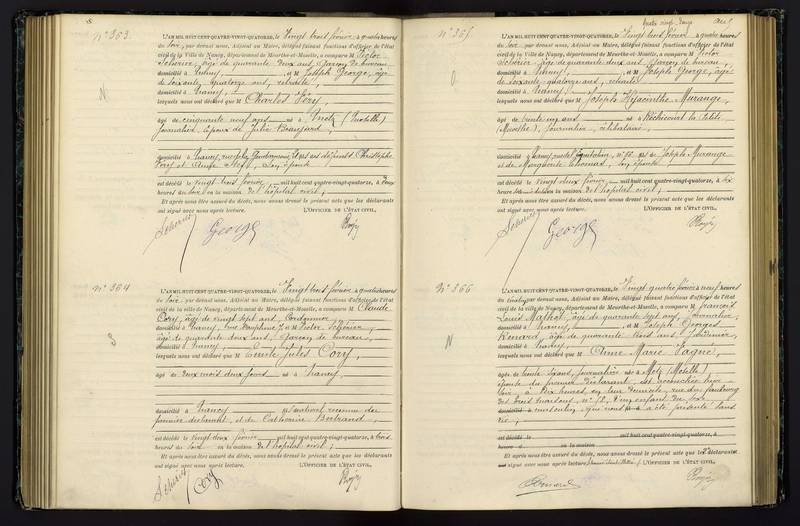 N° 363.
L'AN MIL HUIT CENT QUATRE-VINGT-QUATORZE, le Vingt trois février à quatre heures
du soir, par devant nous, Adjoint au Maire, délégué faisant fonctions d'officier de l'état
civil de la ville de Nancy, département de Meurthe-et-Moselle, a comparu M Victor
Scherier, âgé de quarante deux ans, Garçon de bureau
domicilié à Nancy, et M Joseph George, âgé
de soixante quatorze ans, retraité,
domicilié à Nancy,
lesquels nous ont déclaré que M Charles Féry,
âgé de cinquante neuf ans né à Metz (Moselle)
Journalier, époux de Julie Beaujard,
domicilié à Nancy, fils des défunts Christophe
Féry et son épouse
est décédé le Vingt trois février mil huit cent quatre-vingt-quatorze, à
heures du en la maison de l'hôpital civil;
Et après nous être assuré du décès, nous avons dressé le présent acte que les déclarants
ont signé avec nous après lecture. L'OFFICIER DE L'ÉTAT CIVIL,
George
N° 364
L'AN MIL HUIT CENT QUATRE-VINGT-QUATORZE, le Vingt trois février à quatre heures
du soir, par devant nous, Adjoint au Maire, délégué faisant fonctions d'officier de l'état
civil de la ville de Nancy, département de Meurthe-et-Moselle, a comparu M Claude
Cory, âgé de vingt sept ans, Cordonnier,
domicilié à Nancy, et M Victor Scherier,
âgé de quarante deux ans, Garçon de bureau,
domicilié à Nancy,
lesquels nous ont déclaré que M Emile Jules Cory,
âgé de deux mois deux jours né à Nancy
domicilié à Nancy fils naturel reconnu du
premier déclarant, et de Catherine Bertrand
est décédé le Vingt deux février mil huit cent quatre-vingt-quatorze, à trois
heures du soir en la maison de l'hôpital civil;
Et après nous être assuré du décès, nous avons dressé le présent acte que les déclarants
ont signé avec nous après lecture. L'OFFICIER DE L'ÉTAT CIVIL,
Cory
N° 365.
L'AN MIL HUIT CENT QUATRE-VINGT-QUATORZE, le Vingt trois février à quatre heures
du soir, par devant nous, Adjoint au Maire, délégué faisant fonctions d'officier de l'état
civil de la ville de Nancy, département de Meurthe-et-Moselle, a comparu M Victor
Scherier, âgé de quarante deux ans, Garçon de bureau,
domicilié à Nancy, et M Joseph George, âgé
de soixante quatorze ans, retraité
domicilié à Nancy
lesquels nous ont déclaré que M Joseph Hyacinthe Murange,
âgé de trente cinq ans né à Réchicourt la Petite
(Meurthe), Journalier, célibataire,
domicilié à Nancy, fils de Joseph Murange
et de Marguerite Thomas, son épouse
est décédé le Vingt deux février mil huit cent quatre-vingt-quatorze, à dix
heures en la maison de l'hôpital civil;
Et après nous être assuré du décès, nous avons dressé le présent acte que les déclarants
ont signé avec nous après lecture. L'OFFICIER DE L'ÉTAT CIVIL,
George
N° 366
L'AN MIL HUIT CENT QUATRE-VINGT-QUATORZE, le Vingt quatre février à neuf heures
du matin, par devant nous, Adjoint au Maire, délégué faisant fonctions d'officier de l'état
civil de la ville de Nancy, département de Meurthe-et-Moselle, a comparu M François
Louis Mathiot, âgé de quarante sept ans, Journalier,
domicilié à Nancy, et M Joseph Georges
Renard, âgé de quarante trois ans, Jardinier,
domicilié à Nancy
lesquels nous ont déclaré que M Anne Marie Fagné,
âgée de trente six ans, Journalière née à Metz (Moselle),
épouse du premier déclarant, est accouchée hier
soir, à deux heures, en leur domicile, rue du faubourg
des trois maisons, d'un enfant du sexe
masculin, qui nous a été présenté sans
vie;
est décédé le mil huit cent quatre-vingt-quatorze, à
heures d en la maison
Et après nous être assuré du décès, nous avons dressé le présent acte que les déclarants
ont signé avec nous après lecture. L'OFFICIER DE L'ÉTAT CIVIL,
Renard